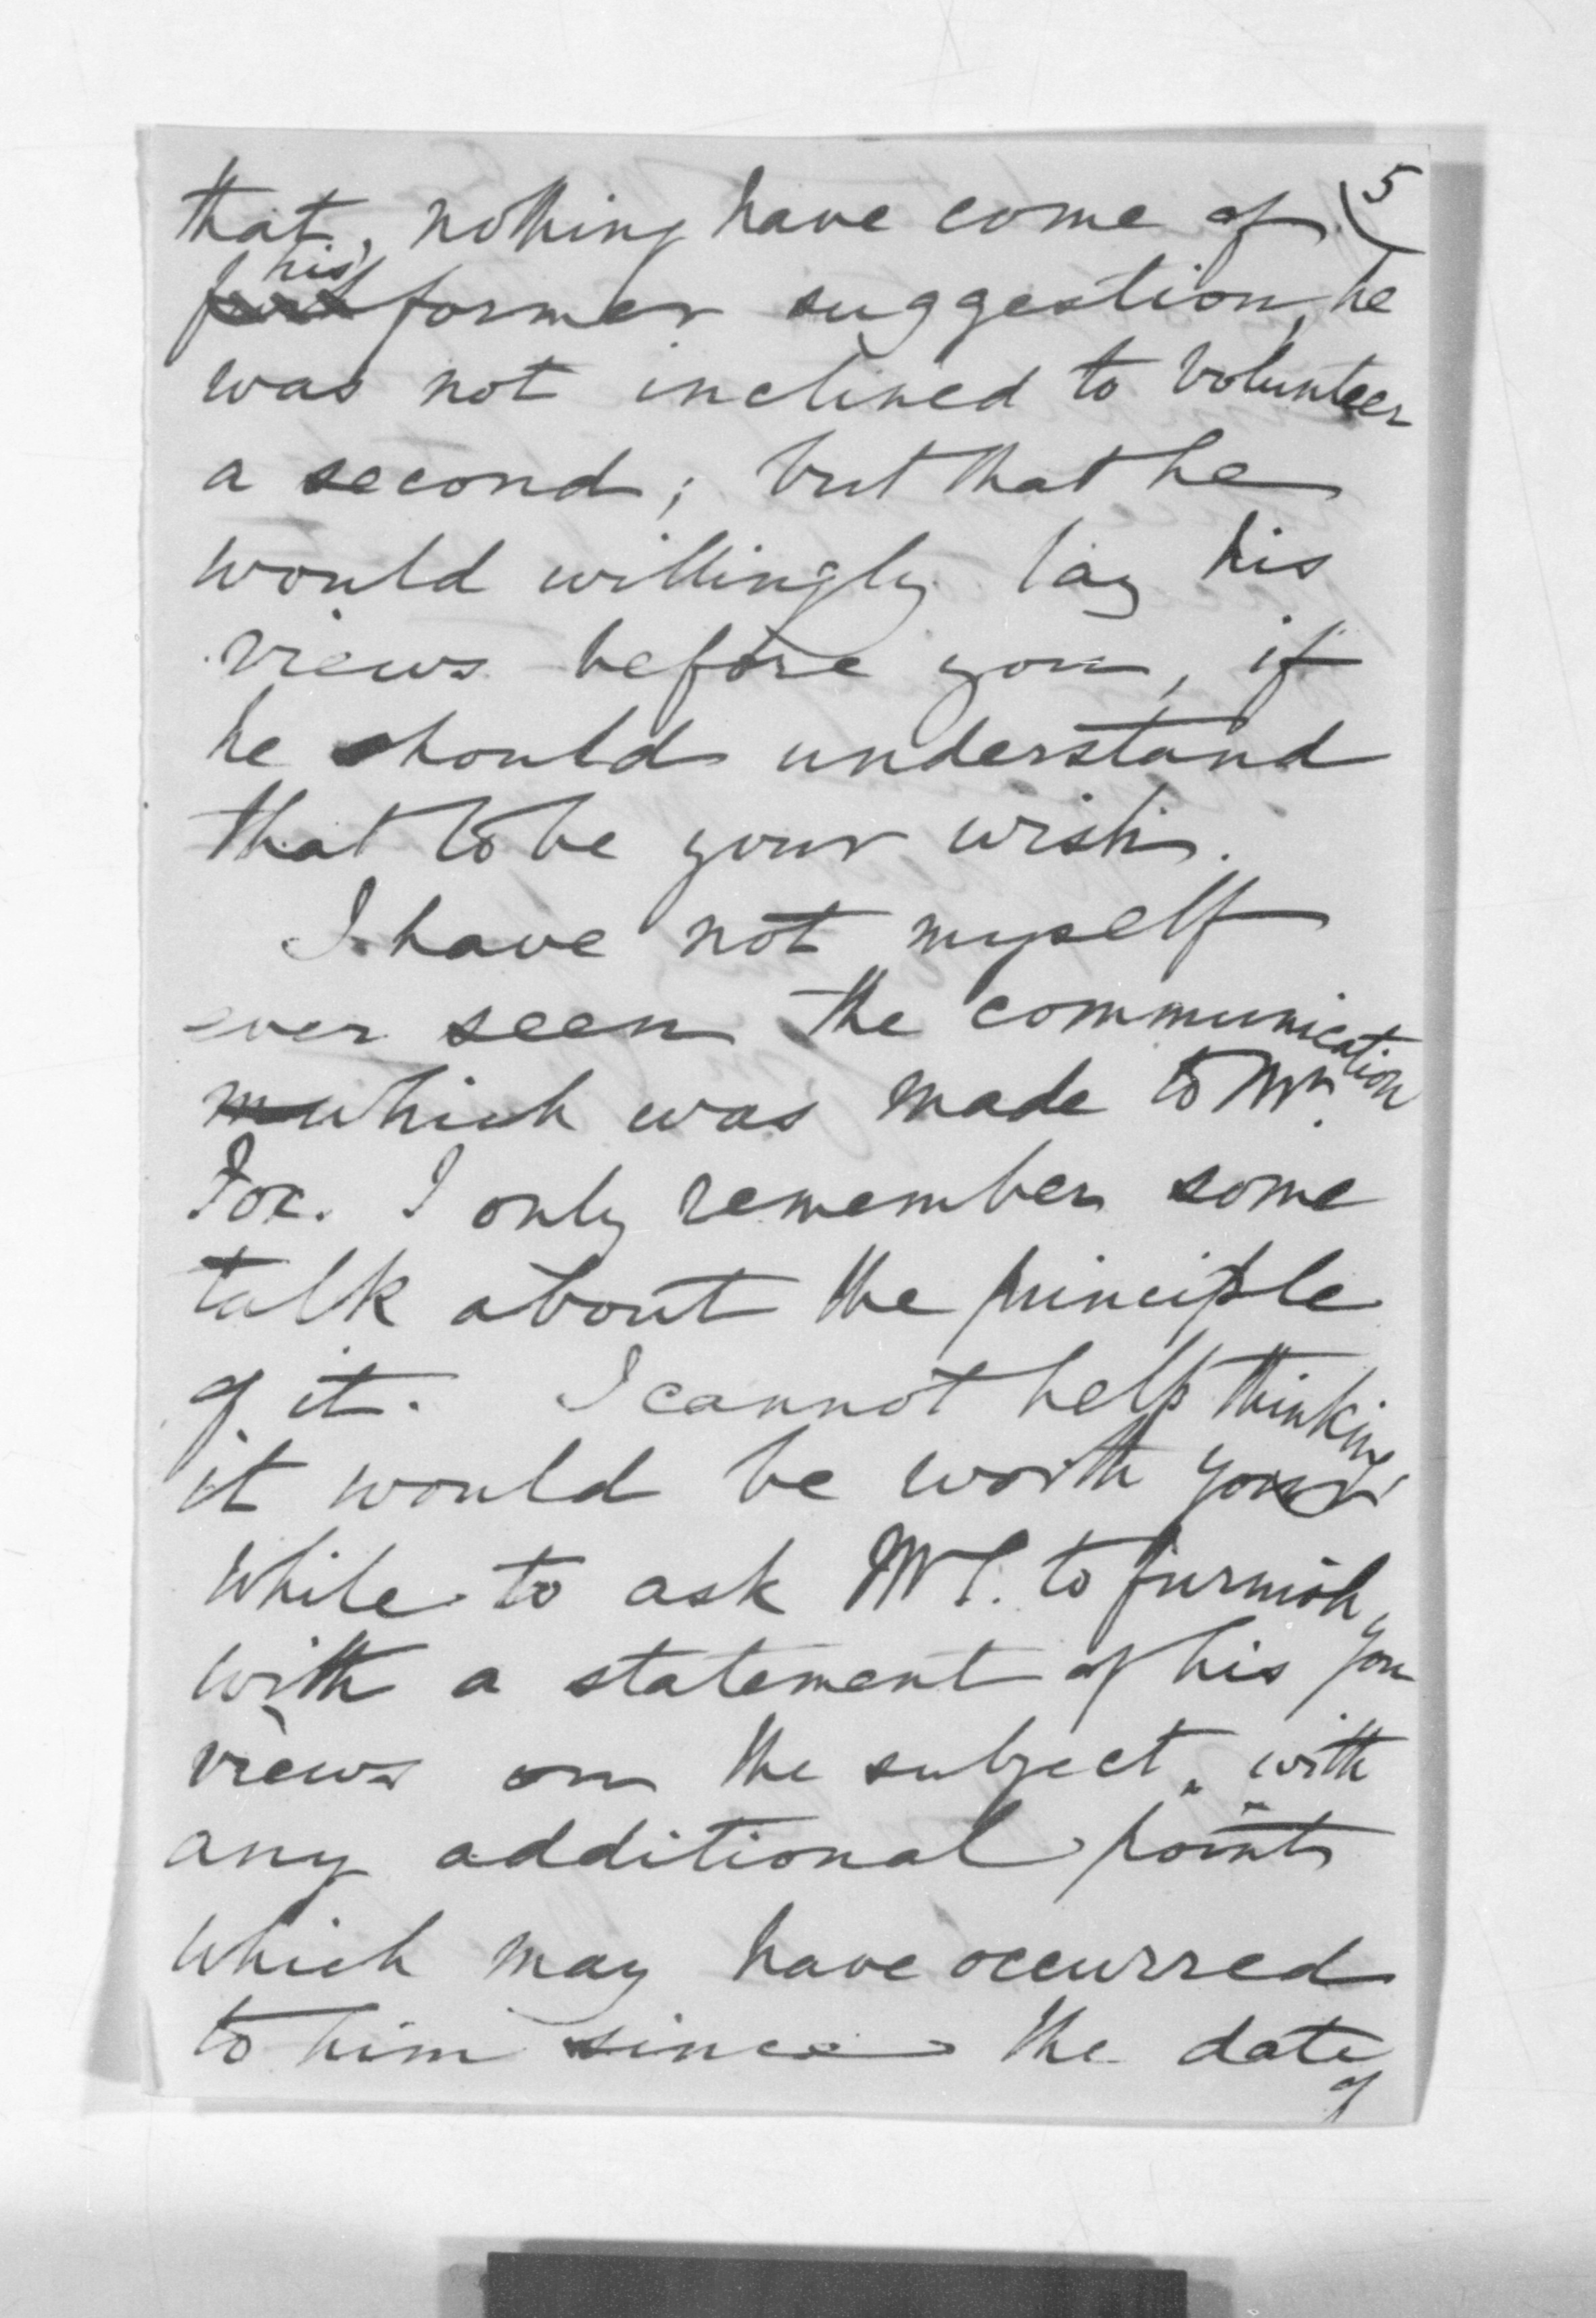 5
that, nothing have come of
his former suggestion, he
was not inclined to volunteer
a second; but that he
would willingly lay his
views before you, if
he should understand
that to be your wish.
I have not myself
ever seen the communication
which was made to Mr.
Fox. I only remember some
talk about the principle
of it. I cannot help thinking
it would be worth your
while to ask Mr to furnish you
with a statement of his
views on the subject, with
any additional points
which may have occurred
to him since the date
of